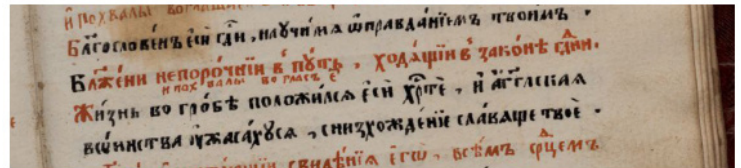 и похвалы
Бл҃гословенъ еси гд҃и, научи мѧ ѡправданїемъ твоимъ.
Бл҃жени непорочнїи в пꙋть, ходѧщїи в законѣ гд҃ни.
и похвалы во гласъ є҃
Жизнь во гробѣ положилсѧ еси хр҃те, и агг҃лскаѧ
воинства ᲂужасахꙋсѧ, снизхожденїе славѧще твоѐ.
свидѣнїѧ єгѡ, всѣмъ ср҃цемъ